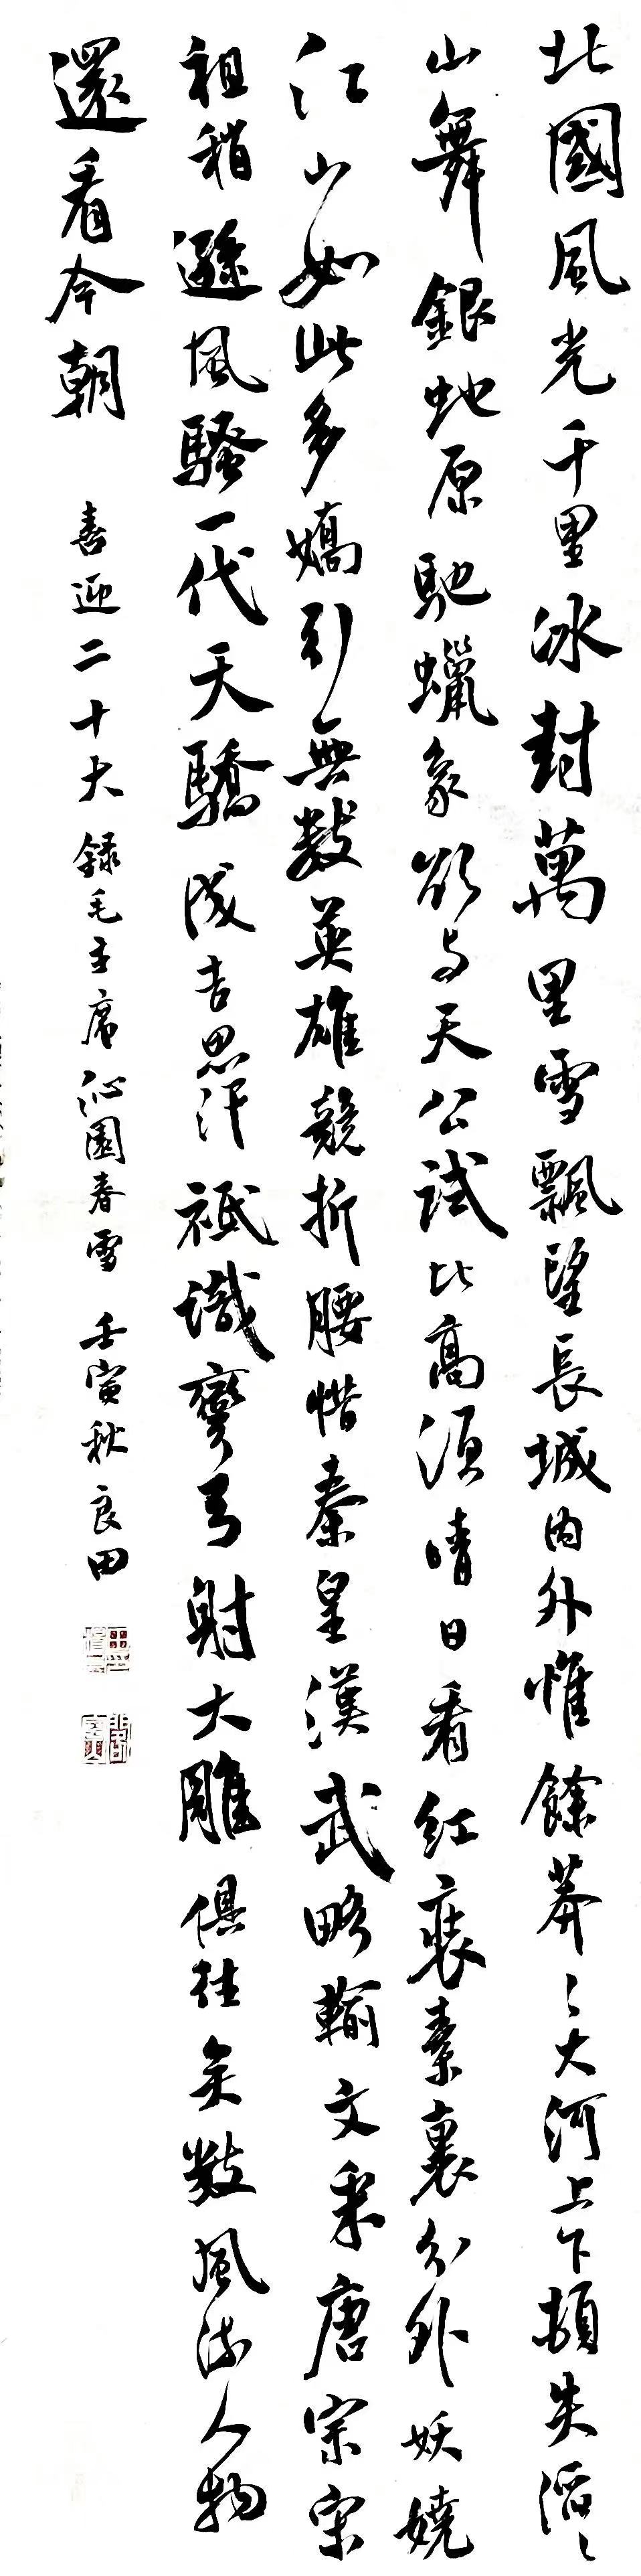 北國風光千里冰封萬里雪飄望長城內外惟餘莽〻大河上下頓失滔〻
山舞銀蛇原馳蠟象欲与天公試比高須晴日看紅裹素裹分外妖嬈
江山如此多嬌引無數英雄競折腰惜秦皇漢武略輸文采唐宗宋
祖稍遜風騷一代天驕成吉思汗祇識彎弓射大雕俱往矣數風流人物
還看今朝
喜迎二十大錄毛主席沁園春雪 壬寅秋良田